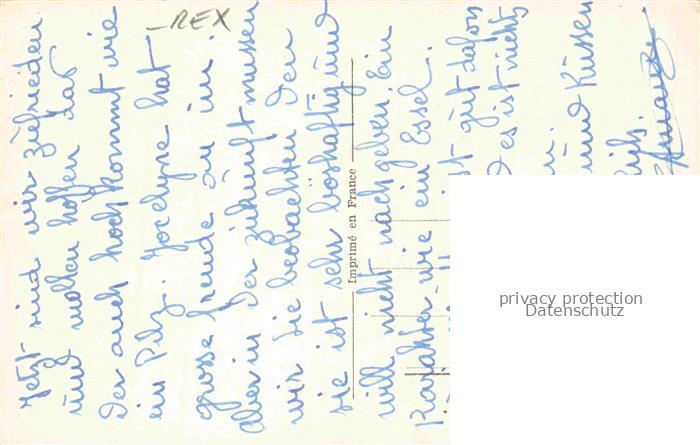 REX
Jetzt sind wir zufrieden
und wollen hoffen das
der auch hoch kommt wie
ein Pilz. Jocelyne hat
grosse freude an im.
Aber in der zukunft mussen
wir sie beobachten den
sie ist sehr boshaftig und
will nicht nachgeben. Ein
Karakter wie ein Essel.
gut das
es ist nichts
und Küssen
Imprimé en France
privacy protection
Datenschutz